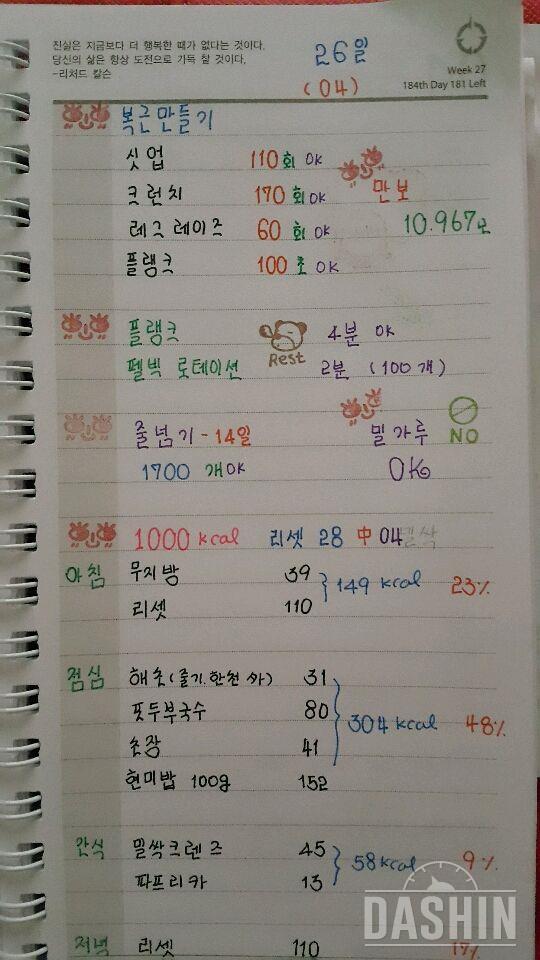 진실은 지금보다 더 행복한 때가 없다는 것이다.
당신의 삶은 항상 도전으로 가득 찰 것이다.
-리처드 칼슨
26일
(04)
Week 27
184th Day 181 Left
복근만들기
싯업 110회 OK
크런치 170회 OK
만보
레그레이즈 60회 OK
10.967보
플랭크 100초 OK
플랭크 4분 OK
Rest
펠빅 로테이션 2분 (100개)
줄넘기 - 14일
밀가루 NO
1700 개 OK
OK
1000 kcal 리셋 28 中 04
아침 무지방 39
리셋 110
149 kcal 23%
점심 해초(줄기.한천 사) 31
풋두부국수 80
초장 41
현미밥 100g 152
304 kcal 48%
간식 밀싹크렌즈 45
파프리카 13
58 kcal 9%
저녁 리셋 110 17%
DASHIN